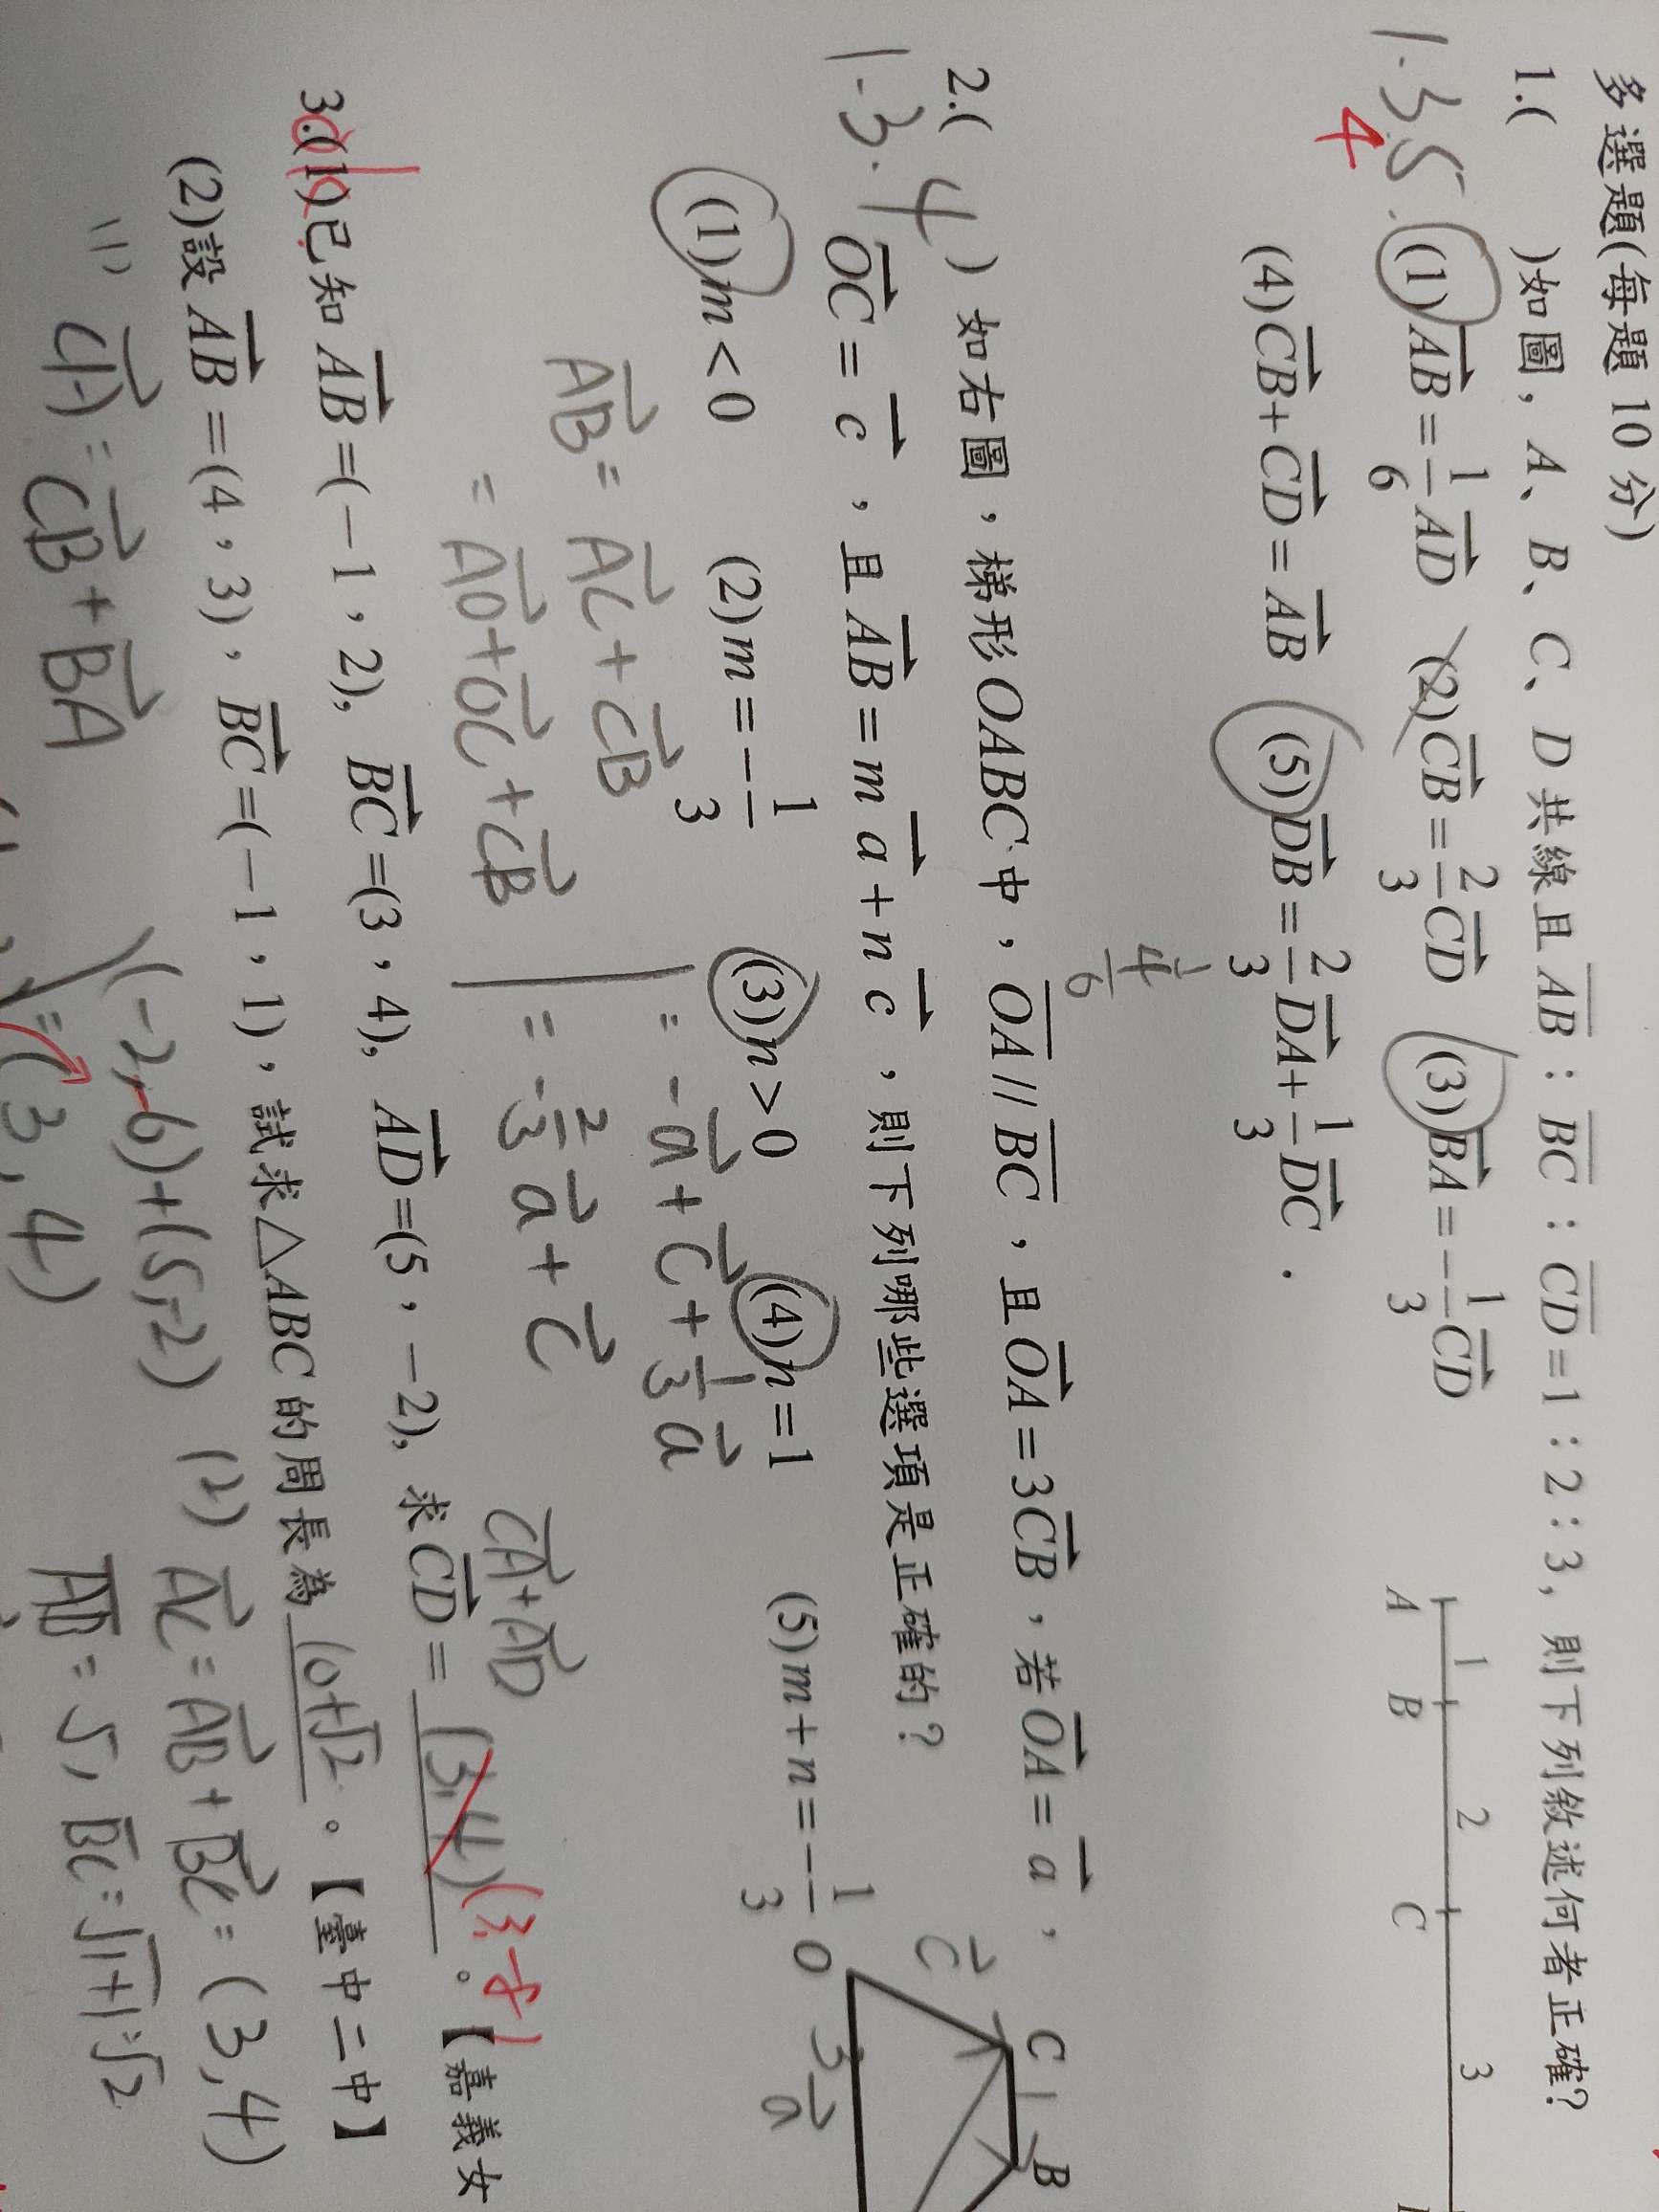 多選題(每題 10 分)
1.( )如圖，A、B、C、D 共線且 AB：BC：CD=1：2：3，則下列敘述何者正確?
A 1 B 2 C 3
1.3.5
4
(1)AB=1/6 AD (2)CB=2/3 CD (3)BA=-1/3 CD
(4)CB+CD=AB (5)DB=2/3 DA+1/3 DC．
2.( 1.3.4 ) 如右圖，梯形OABC中，OA//BC，且OA=3CB，若OA=a，
OC=c，且AB=m a+n c，則下列哪些選項是正確的？
(1)m<0 (2)m=-1/3 (3)n>0 (4)n=1 (5)m+n=-1/3
O C B
c 1 3 a
AB=AC+CB
=AO+OC+CB
=-a+c+1/3 a
=-2/3 a+c
CA+AD
3.(1)已知AB=(-1，2)，BC=(3，4)，AD=(5，-2)，求CD= (3,4) 。【嘉義女
(2)設AB=(4，3)，BC=(-1，1)，試求△ABC的周長為 10+√2 。【臺中二中】
(1) CA=CB+BA
(-2,-6)+(5,-2)
=(3,4)
(2) AC=AB+BC=(3,4)
AB=5, BC=√1+1=√2